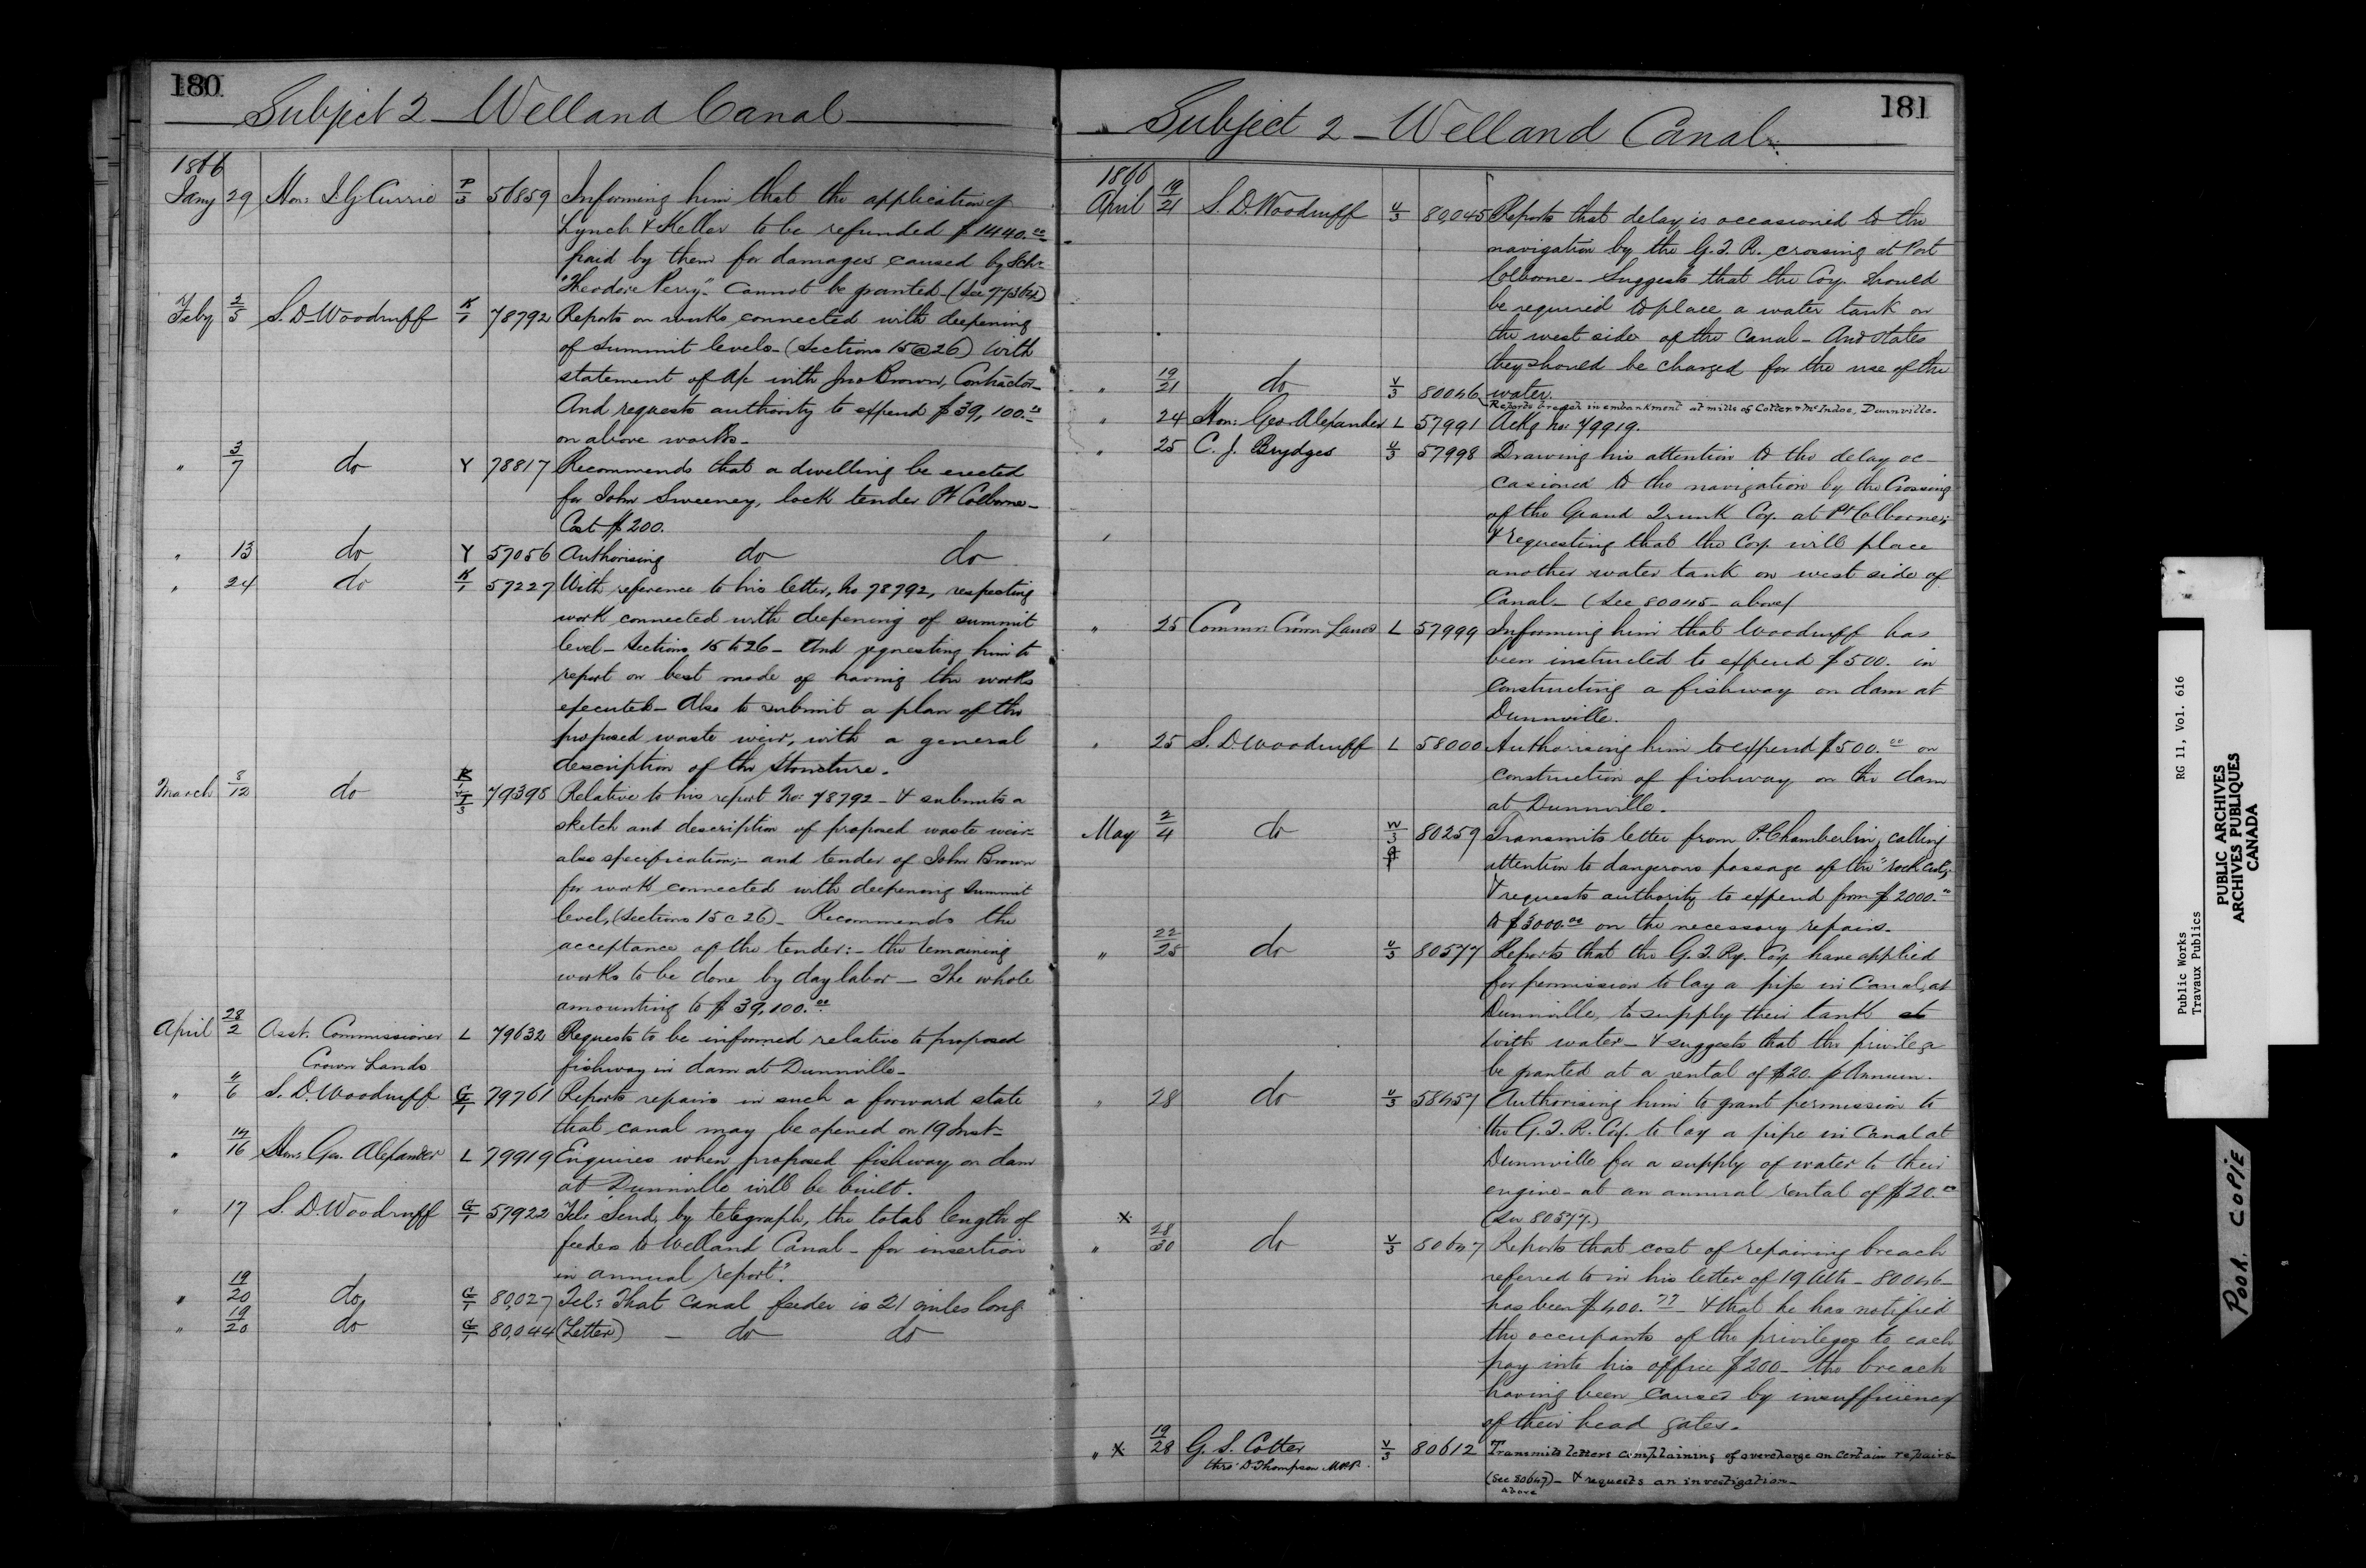 180
Subject 2 - Welland Canal
1866
Jany 29 Hon: J. G. Currie P/3 56859 Informing him that the application of
Lynch & Keller to be refunded $1440.00
paid by them for damages caused by Schr
"Theodore Perry" - Cannot be granted - (See 77364)
Feby 2/5 S. D. Woodruff K/1 78792 Reports on works connected with deepening
of summit levels - (Sections 15 @ 26) With
statement of a/c with Jno Brown, Contractor -
And requests authority to expend $39,100.00
on above works -
" 3/7 do Y 78817 Recommends that a dwelling be erected
for John Sweeney, lock tender Pt Colborne -
Cost $200.
" 13 do Y 57056 Authorising do do
" 24 do K/1 57227 With reference to his letter, No 78792, respecting
work connected with deepening of summit
level - Sections 15 to 26 - And requesting him to
report on best mode of having the works
executed - Also to submit a plan of the
proposed waste weir, with a general
description of the structure.
March 8/12 do 79398 Relative to his report No: 78792 - & submits a
sketch and description of proposed waste weir -
also specification; - and tender of John Brown
for work connected with deepening summit
level, (Sections 15 @ 26) - Recommends the
acceptance of the tender: - the remaining
works to be done by day labor - The whole
amounting to $39,100.00
April 28/2 Asst. Commissioner L 79632 Requests to be informed relative to proposed
Crown Lands fishway in dam at Dunnville -
" 4/6 S. D. Woodruff G/1 79761 Reports repairs in such a forward state
that canal may be opened on 19 Inst -
" 14/16 Hon: Geo. Alexander L 79919 Enquires when proposed fishway on dam
at Dunnville will be built.
" 17 S. D. Woodruff G/1 57922 Tel: "Send, by telegraph, the total length of
feeder to Welland Canal - for insertion
in annual report".
" 19/20 do G/1 80,027 Tel: That Canal feeder is 21 miles long
" 19/20 do G/1 80,044 (Letter) - do do
181
Subject 2 - Welland Canal
1866
April 19/21 S. D. Woodruff U/3 80045 Reports that delay is occasioned to the
navigation by the G. T. R. crossing at Port
Colborne - Suggests that the Coy. should
be required to place a water tank on
the west side of the Canal - And states
they should be charged for the use of the
water.
" 19/21 do V/3 80046 Reports breach in embankment at mills of Cotter & McIndoe, Dunnville -
" 24 Hon: Geo Alexander L 57991 Ackg no: 79919.
" 25 C. J. Brydges U/3 57998 Drawing his attention to the delay oc-
casioned to the navigation by the Crossing
of the Grand Trunk Coy. at Pt Colborne;
& requesting that the Coy. will place
another water tank on west side of
Canal - (See 80045 - above)
" 25 Commr: Crown Lands L 57999 Informing him that Woodruff has
been instructed to expend $500. in
constructing a fishway on dam at
Dunnville.
" 25 S. D. Woodruff L 58000 Authorising him to expend $500.00 on
construction of fishway on the dam
at Dunnville -
May 2/4 do W/3 80259 Transmits letter from P. Chamberlin, calling
attention to dangerous passage of the "rock cut",
& requests authority to expend from $2000.00
to $3000.00 on the necessary repairs -
" 22/25 do U/3 80577 Reports that the G. T. Ry. Coy. have applied
for permission to lay a pipe in Canal, at
Dunnville, to supply their tank
with water - & suggests that the privilege
be granted at a rental of $20. p Annum.
" 28 do U/3 58457 Authorising him to grant permission to
the G. T. R. Coy. to lay a pipe in Canal at
Dunnville for a supply of water to their
engine - at an annual rental of $20.00
x (See 80577.)
" 28/30 do V/3 80647 Reports that cost of repairing breach
referred to in his letter of 19 Ulto - 80046 -
has been $400.77 - & that he has notified
the occupants of the privileges to each
pay into his office $200 - the breach
having been caused by insufficiency
of their head gates -
" x 19/28 G. S. Cotter V/3 80612 Transmits letters complaining of overcharge on certain repairs -
thro' D. Thompson M.P.P. (See 80647) - & requests an investigation -
above
Public Works RG 11, Vol. 616
Travaux Publics
PUBLIC ARCHIVES
ARCHIVES PUBLIQUES
CANADA
POOR COPIE